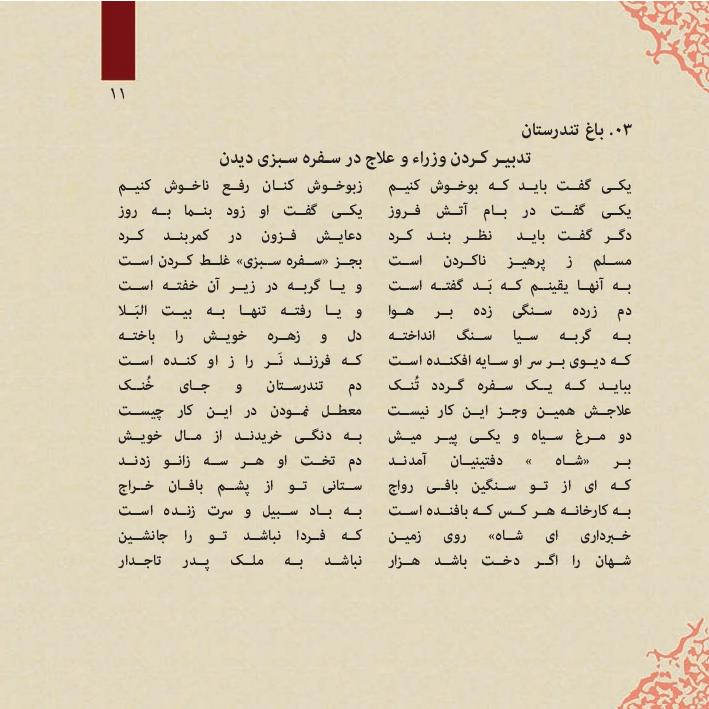 ۱۱
۰۳. باغ تندرستان
تدبیر کردن وزراء و علاج در سفره سبزی دیدن
یکی گفت باید که بوخوش کنیم زبوخوش کنان رفع ناخوش کنیم
یکی گفت در بام آتش فروز یکی گفت او زود بنما به روز
دگر گفت باید نظر بند کرد دعایش فزون در کمربند کرد
مسلم ز پرهیز ناکردن است بجز «سفره سبزی» غلط کردن است
به آنها یقینم که بَد گفته است و یا گربه در زیر آن خفته است
دم زرده سنگی زده بر هوا و یا رفته تنها به بیت البَلا
به گربه سیا سنگ انداخته دل و زهره خویش را باخته
که دیوی بر سر او سایه افکنده است که فرزند نَر را ز او کنده است
بباید که یک سفره گردد تُنک دم تندرستان و جای خُنک
علاجش همین وجز این کار نیست معطل نمودن در این کار چیست
دو مرغ سیاه و یکی پیر میش به دنگی خریدند از مال خویش
بر «شاه » دفتینیان آمدند دم تخت او هر سه زانو زدند
که ای از تو سنگین بافی رواج ستانی تو از پشم بافان خراج
به کارخانه هر کس که بافنده است به باد سبیل و سرت زنده است
خبرداری ای شاه» روی زمین که فردا نباشد تو را جانشین
شهان را اگر دخت باشد هزار نباشد به ملک پدر تاجدار